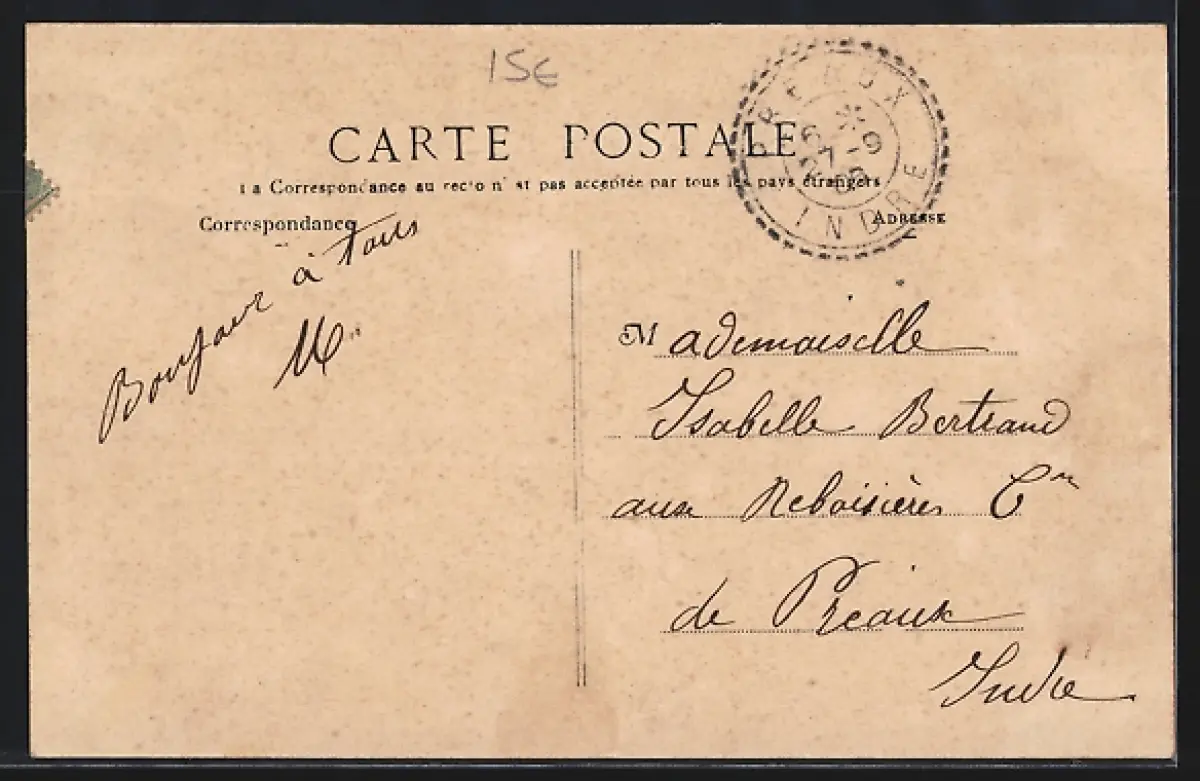 15€
CARTE POSTALE
La Correspondance au recto n'est pas acceptée par tous les pays étrangers
Correspondance
ADRESSE
PREAUX
6
27-9
05
INDRE
Bonjour à tous
M.
Mademoiselle
Isabelle Bertrand
aux Reboisières Cne
de Préaux
Indre